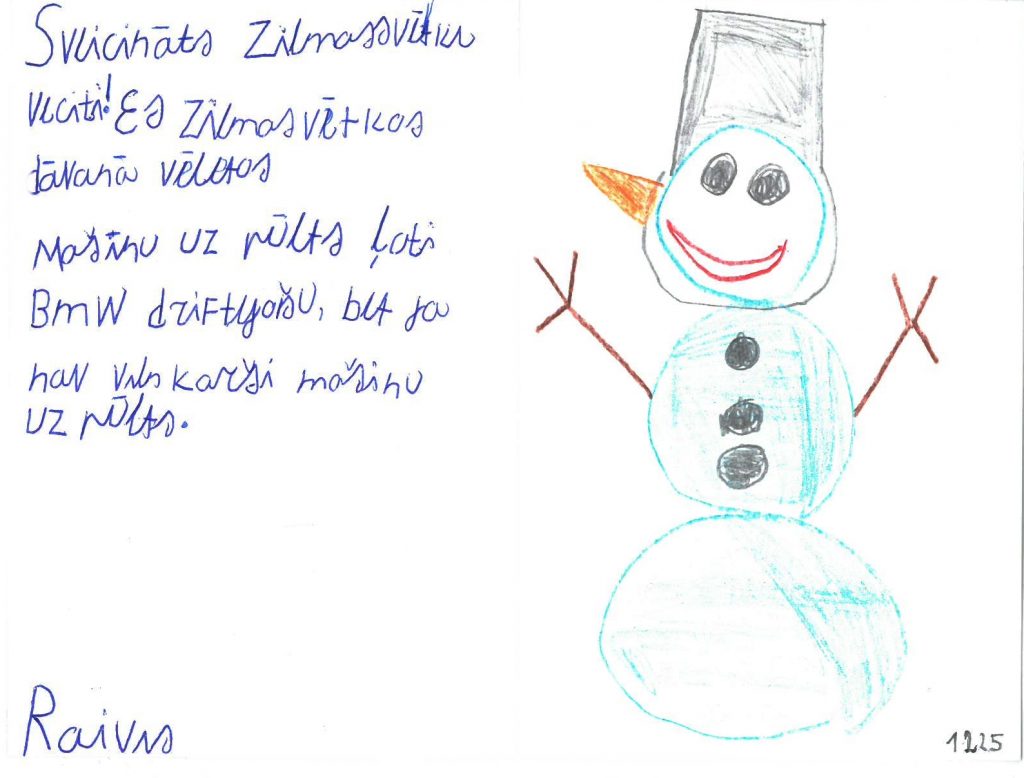 Sveicināts Zilmassvētku
vecīti! Es Zilmasvētkos
tāvanā vēlētos
mašīnu uz pūlts ļoti
BMW driftyošu, bet ja
nav vien karši mašīnu
uz pūlts.
Raivis
1225